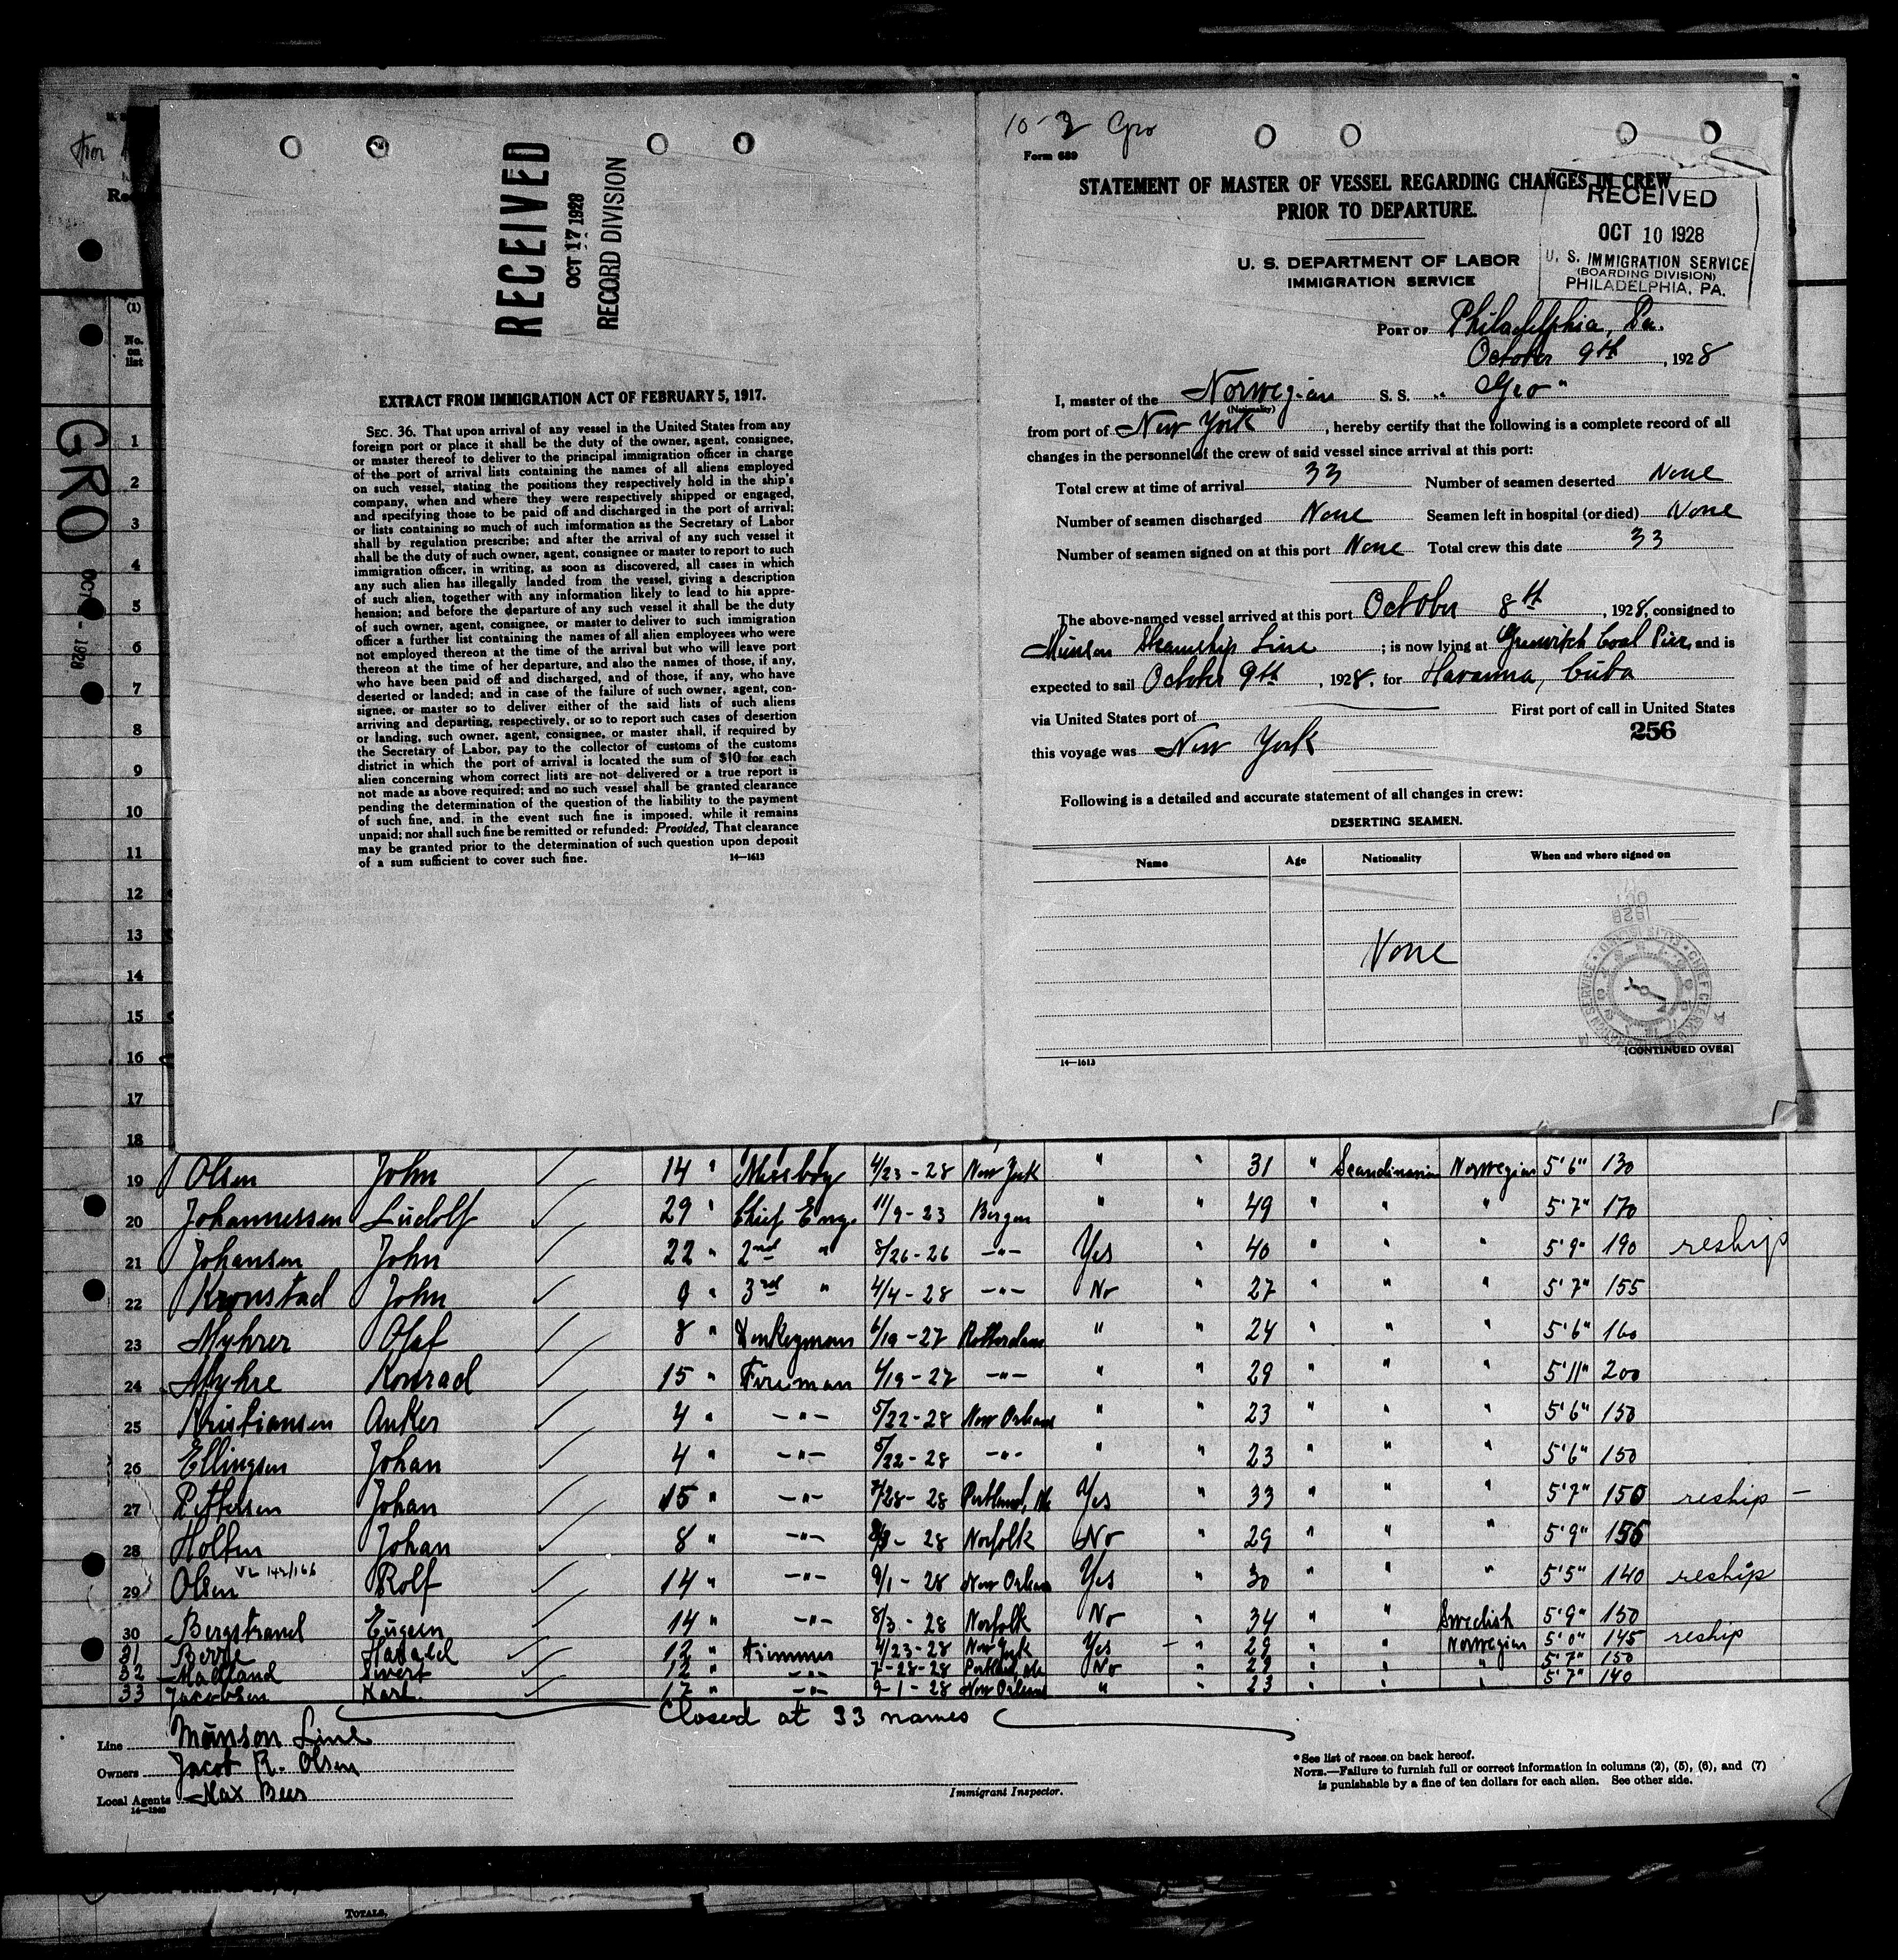 RECEIVED
OCT 17 1928
RECORD DIVISION
EXTRACT FROM IMMIGRATION ACT OF FEBRUARY 5, 1917.
SEC. 36. That upon arrival of any vessel in the United States from any
foreign port or place it shall be the duty of the owner, agent, consignee,
or master thereof to deliver to the principal immigration officer in charge
of the port of arrival lists containing the names of all aliens employed
on such vessel, stating the positions they respectively hold in the ship's
company, when and where they were respectively shipped or engaged,
and specifying those to be paid off and discharged in the port of arrival;
or lists containing so much of such imformation as the Secretary of Labor
shall by regulation prescribe; and after the arrival of any such vessel it
shall be the duty of such owner, agent, consignee or master to report to such
immigration officer, in writing, as soon as discovered, all cases in which
any such alien has illegally landed from the vessel, giving a description
of such alien, together with any information likely to lead to his appre-
hension; and before the departure of any such vessel it shall be the duty
of such owner, agent, consignee, or master to deliver to such immigration
officer a further list containing the names of all alien employees who were
not employed thereon at the time of the arrival but who will leave port
thereon at the time of her departure, and also the names of those, if any,
who have been paid off and discharged, and of those, if any, who have
deserted or landed; and in case of the failure of such owner, agent, con-
signee, or master so to deliver either of the said lists of such aliens
arriving and departing, respectively, or so to report such cases of desertion
or landing, such owner, agent, consignee, or master shall, if required by
the Secretary of Labor, pay to the collector of customs of the customs
district in which the port of arrival is located the sum of $10 for each
alien concerning whom correct lists are not delivered or a true report is
not made as above required; and no such vessel shall be granted clearance
pending the determination of the question of the liability to the payment
of such fine, and, in the event such fine is imposed, while it remains
unpaid; nor shall such fine be remitted or refunded: Provided, That clearance
may be granted prior to the determination of such question upon deposit
of a sum sufficient to cover such fine. 14—1613
10-9 Gro
Form 689
STATEMENT OF MASTER OF VESSEL REGARDING CHANGES IN CREW
PRIOR TO DEPARTURE.
RECEIVED
OCT 10 1928
U. S. IMMIGRATION SERVICE
(BOARDING DIVISION)
PHILADELPHIA, PA.
U. S. DEPARTMENT OF LABOR
IMMIGRATION SERVICE
PORT OF Philadelphia, Pa.
October 9th, 1928
I, master of the Norwegian S. S. "Gro"
(Nationality)
from port of New York, hereby certify that the following is a complete record of all
changes in the personnel of the crew of said vessel since arrival at this port:
Total crew at time of arrival 33 Number of seamen deserted None
Number of seamen discharged None Seamen left in hospital (or died) None
Number of seamen signed on at this port None Total crew this date 33
The above-named vessel arrived at this port October 8th, 1928, consigned to
Munson Steamship Line; is now lying at Greenwitch Coal Pier, and is
expected to sail October 9th, 1928, for Havanna, Cuba
via United States port of First port of call in United States
this voyage was New York 256
Following is a detailed and accurate statement of all changes in crew:
DESERTING SEAMEN.
Name Age Nationality When and where signed on
None
14—1613 [CONTINUED OVER]
(1)
No. on list
GRO
1
2
3
4
5
6
7
8
9
10
11
12
13
14
15
16
17
18
19 Olsen John 14 " Messboy 4/23-28 New York " " 31 " Scandinavian Norwegian 5'6" 130
20 Johannessen Ludolf 29 " Chief Eng. 11/9-23 Bergen " " 49 " " " 5'7" 170
21 Johansen John 22 " 2nd " 8/26-26 -"- Yes " 40 " " " 5'9" 190 reship
22 Kronstad John 9 " 3rd " 4/4-28 -"- No " 27 " " " 5'7" 155
23 Myhrer Olaf 8 " Donkeyman 6/19-27 Rotterdam " " 24 " " " 5'6" 160
24 Myhre Konrad 15 " Fireman 4/19-27 -"- " " 29 " " " 5'11" 200
25 Kristiansen Anker 4 " -"- 5/22-28 New Orleans " " 23 " " " 5'6" 150
26 Ellingsen Johan 4 " -"- 5/22-28 -"- " " 23 " " " 5'6" 150
27 Pettersen Johan 15 " -"- 7/28-28 Portland, Me Yes " 33 " " " 5'7" 150 reship -
28 Holten Johan 8 " -"- 28 Norfolk No " 29 " " " 5'9" 155
VL 142/166
29 Olsen Rolf 14 " -"- 9/1-28 New Orleans Yes " 30 " " " 5'5" 140 reship
30 Bergstrand Eugen 14 " -"- 8/3-28 Norfolk No " 34 " " Swedish 5'9" 150
31 Harald 12 " Trimmer 4/23-28 New York Yes - " 29 " " Norwegian 5'0" 145 reship
32 Maeland Sivert 12 " -"- 7-28-28 Portland, Me No " 29 " " " 5'7" 150
33 Jacobsen Karl 17 " -"- 9-1-28 New Orleans " " 23 " " " 5'7" 140
Closed at 33 names
Line Munson Line
Owners Jacob R. Olsen
Local Agents Max Bees
14—1240
Immigrant Inspector.
*See list of races on back hereof.
NOTE.—Failure to furnish full or correct information in columns (2), (5), (6), and (7)
is punishable by a fine of ten dollars for each alien. See other side.
TOTALS.